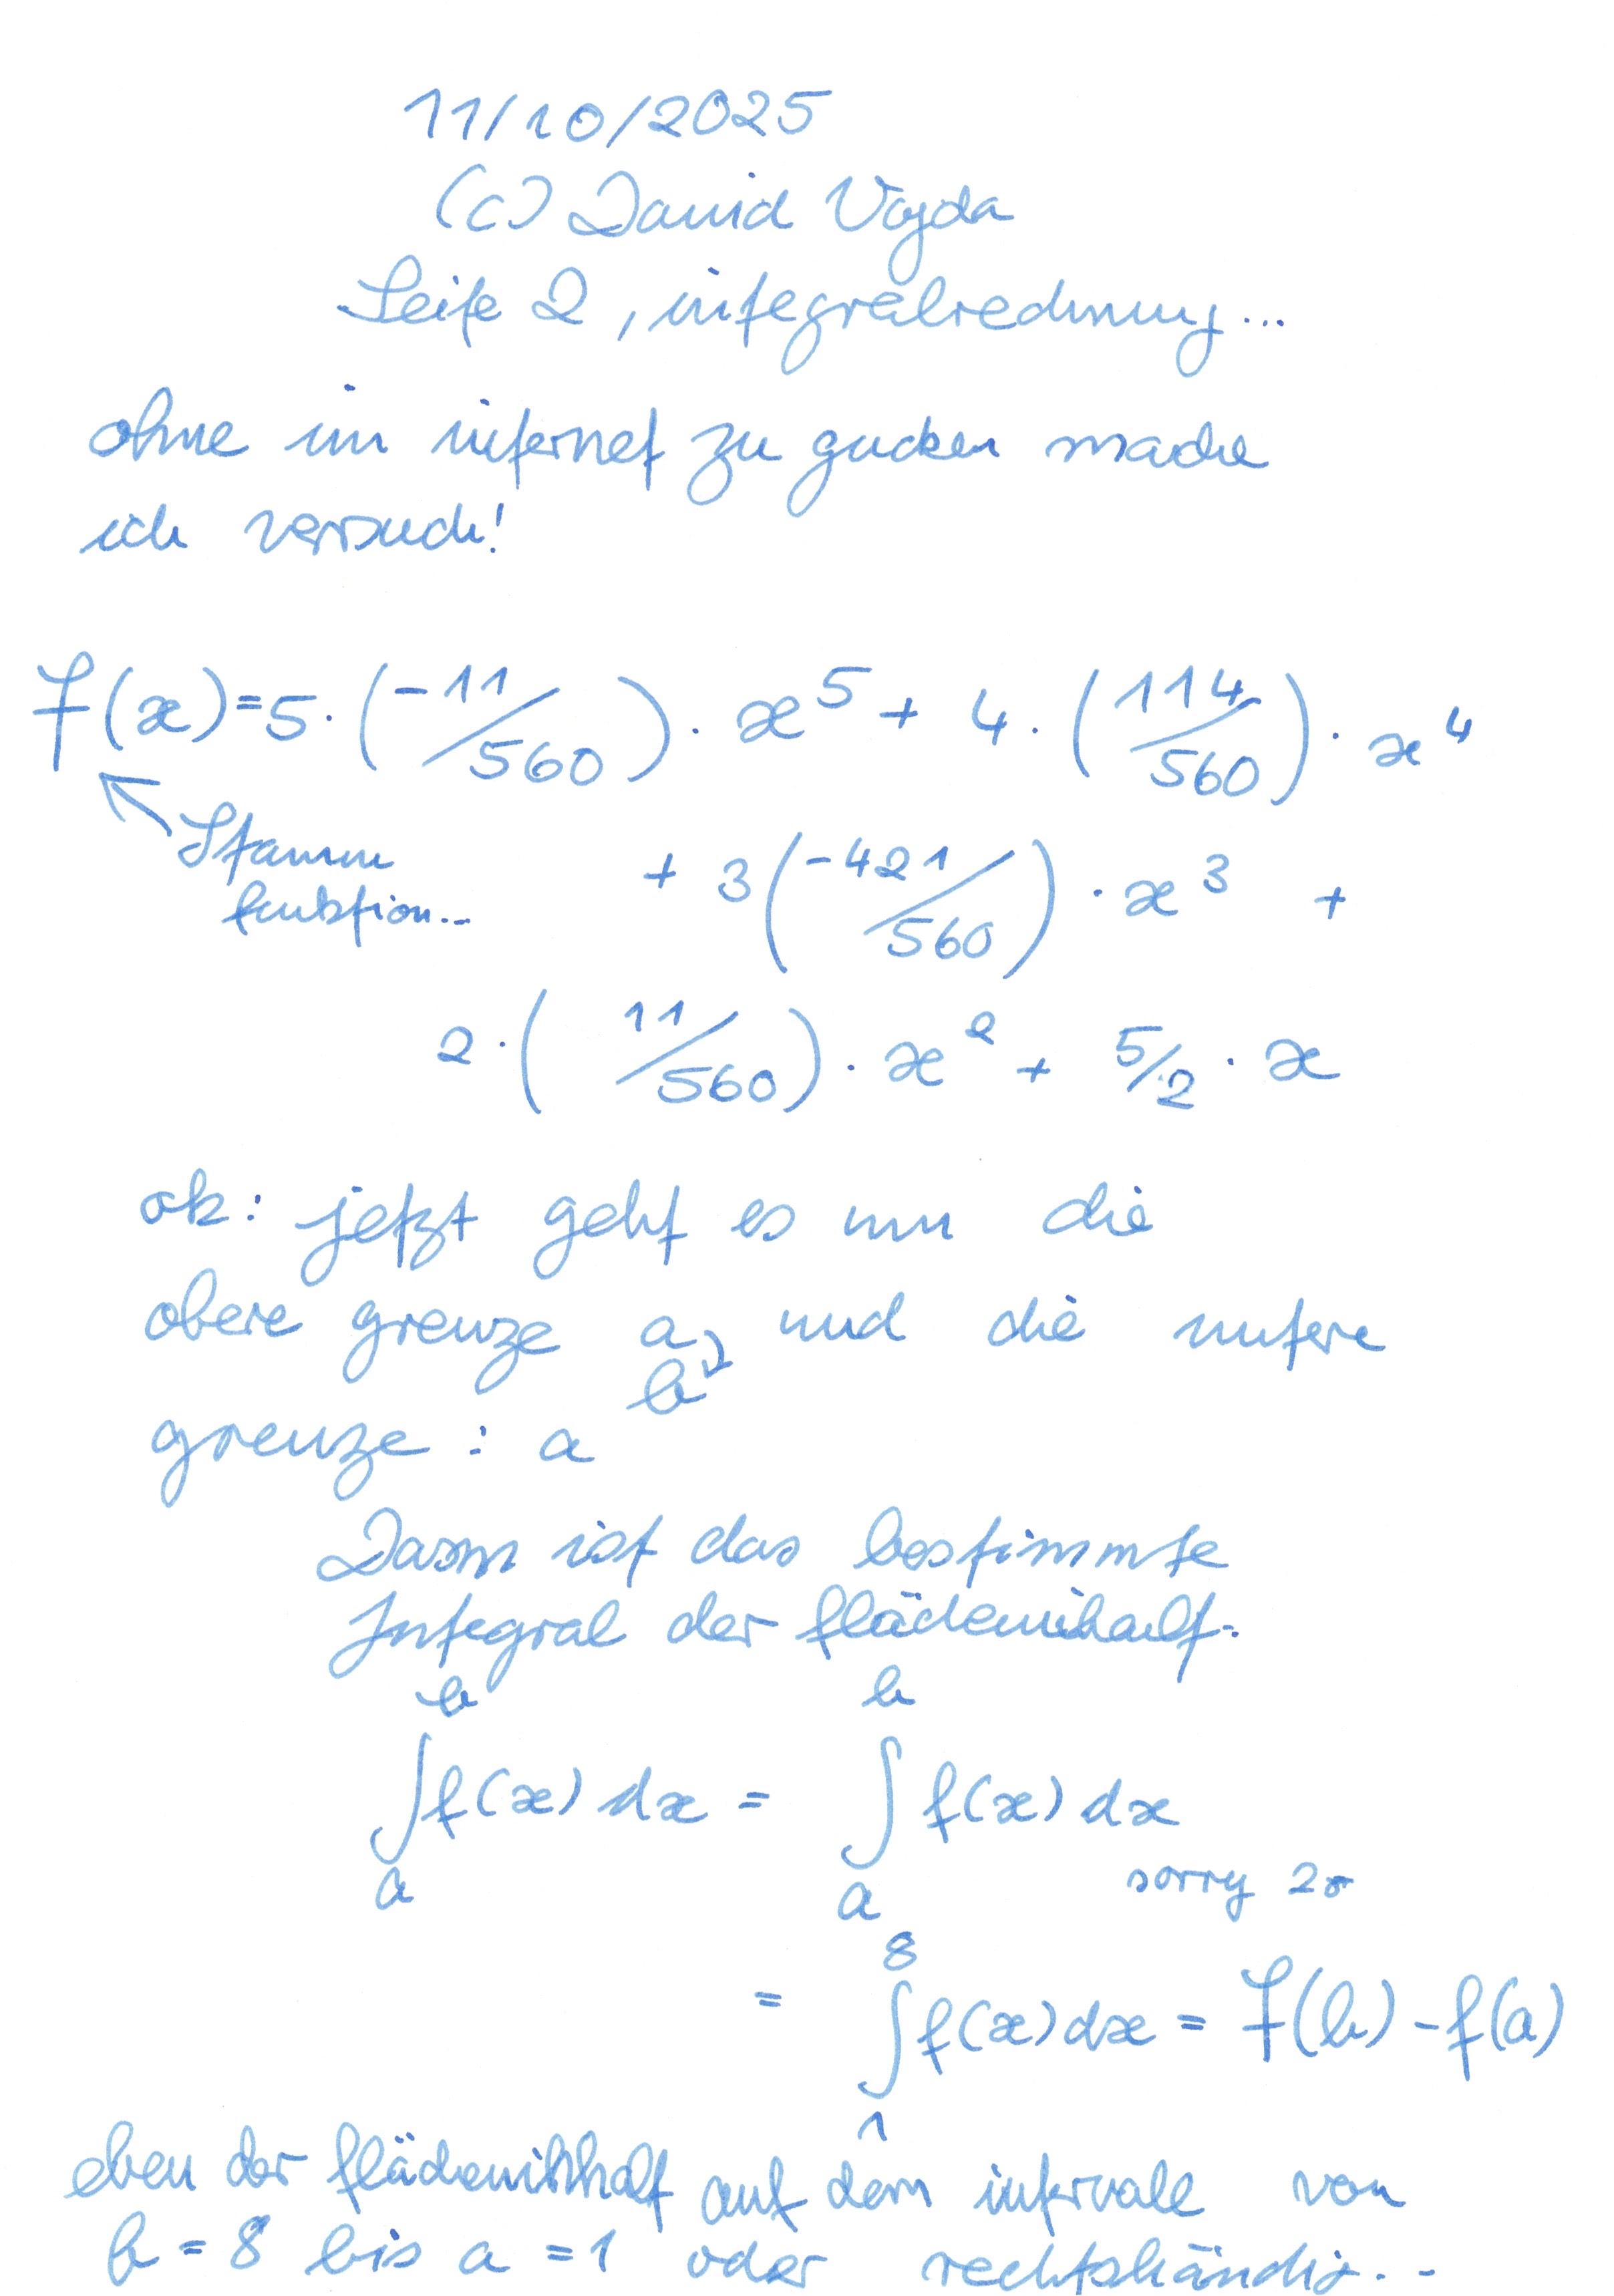 11/10/2025
(c) David Vajda
Seite 2, integralrechnung...
ohne im internet zu gucken mache
ich versuch!
F(x)=5·(-11/560)·x^5 + 4·(114/560)·x^4
Stamm
funktion...
+ 3(-421/560)·x^3 +
2·(11/560)·x^2 + 5/2·x
ok: jetzt geht es um die
obere grenze a, und die untere
b
grenze: a
Dann ist das bestimmte
Integral der flächeninhalt.
b b
∫f(x) dx = ∫f(x) dx
a a sorry 20
8
= ∫f(x)dx = F(b) - f(a)
1
eben der flächeninhhalt auf dem intervall von
b = 8 bis a = 1 oder rechtshändig...